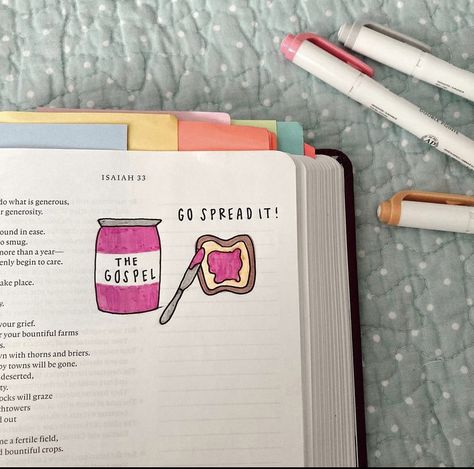 ISAIAH 33
do what is generous,
generosity.
ound in ease.
o smug.
more than a year—
enly begin to care.
ake place.
y.
your grief.
r your bountiful farms
s.
wn with thorns and briers.
py towns will be gone.
deserted,
ty.
ocks will graze
chtowers
d out
me a fertile field,
d bountiful crops.
GO SPREAD IT!
THE
GOSPEL